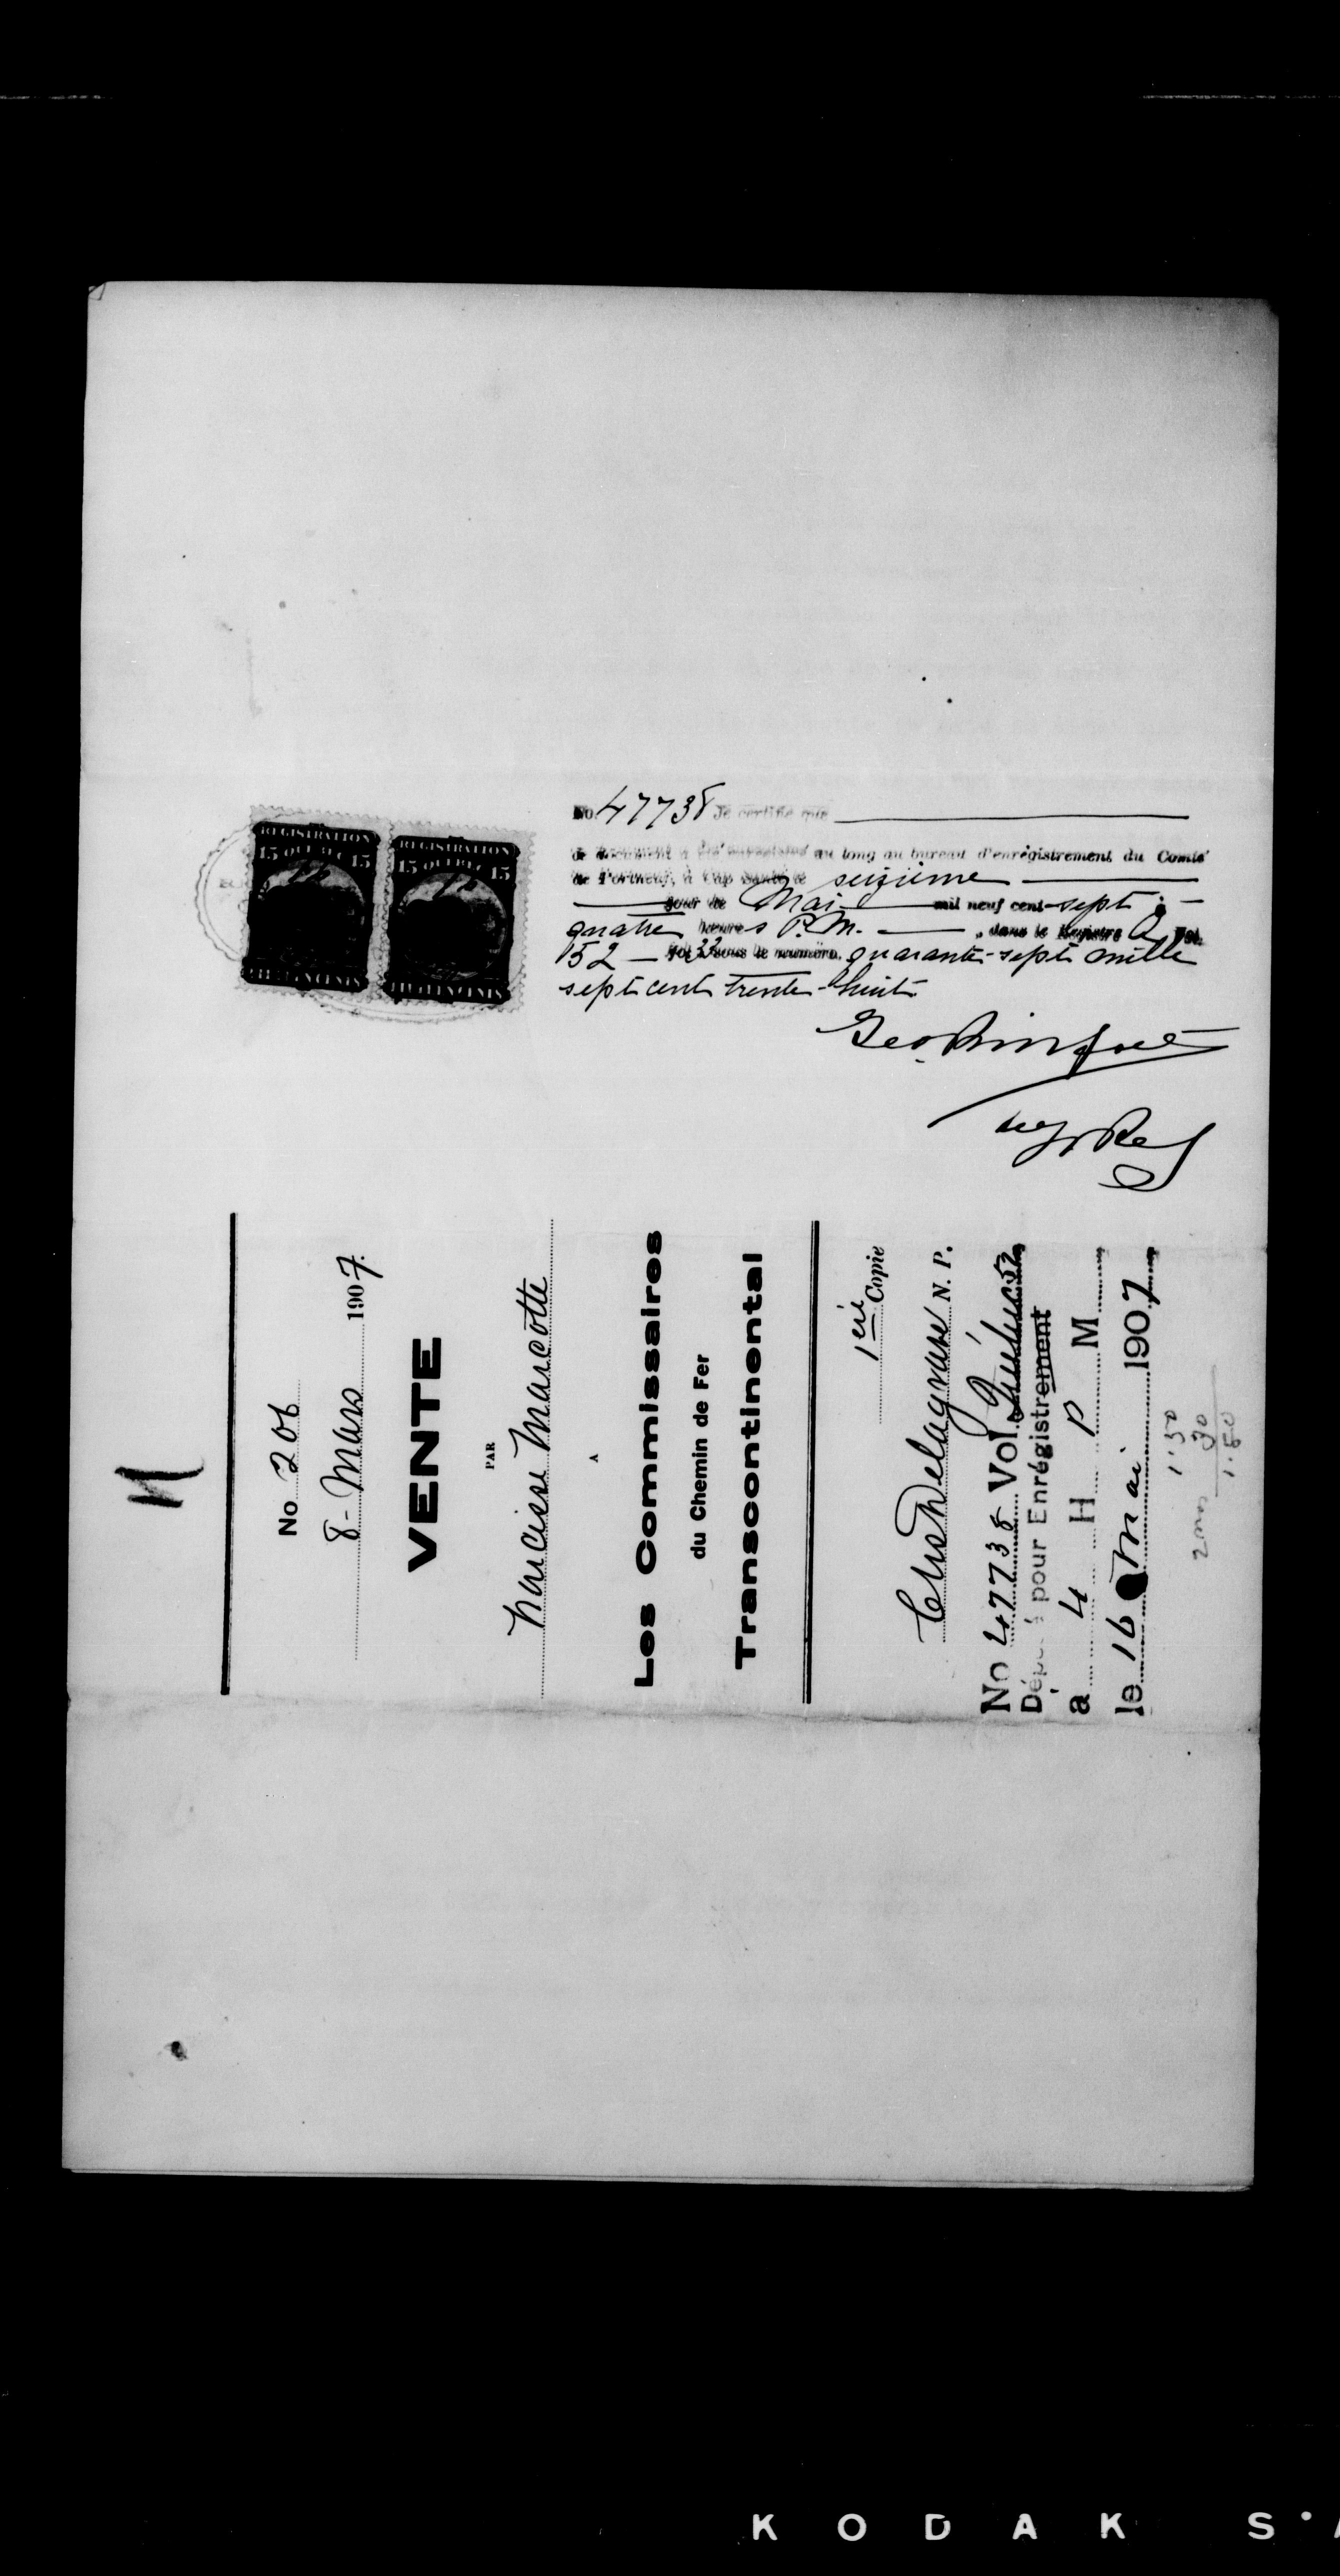 REGISTRATION
15 QUEBEC 15
FIFTEEN CENTS
REGISTRATION
15 QUEBEC 15
FIFTEEN CENTS
No. 47738 Je certifie que
le document a été enregistré au long au bureau d'enrégistrement du Comté
de Portneuf, à Cap Santé, le seizième
jour de Mai mil neuf cent sept
quatre heures P.M. , dans le Registre
152 sous le numéro quarante-sept mille
sept cent trente-huit
N
No 206
8 - Mars 1907.
VENTE
PAR
Narcisse Marcotte
A
Les Commissaires
du Chemin de Fer
Transcontinental
1ère Copie
Delagrave N. P.
No 47738 Vol.
Déposé pour Enrégistrement
a 4 H P M
le 16 Mai 1907
1.50
30
1.80
KODAK S